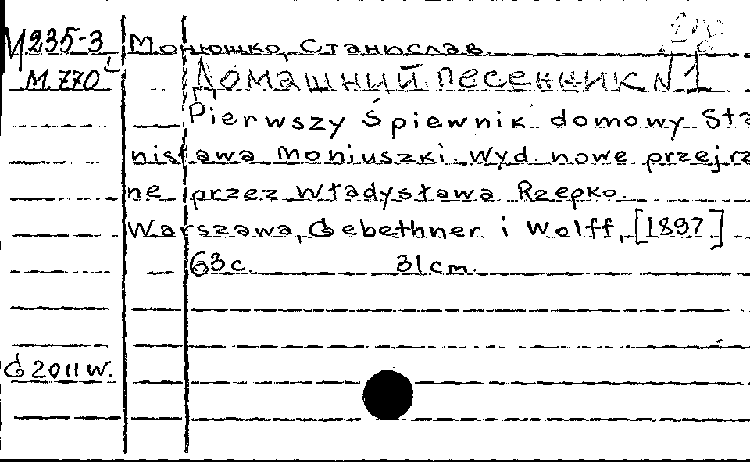 М235-3 Монюшко, Станислав
М.770 Домашний песенник N 1
Pierwszy Śpiewnik domowy Sta
nisława Moniuszki. Wyd. nowe przejrz
ne przez Władysława Rzepko.
Warszawa, Gebethner i Wolff, [1897]
63 с. 31 cm.
G 2011 W.